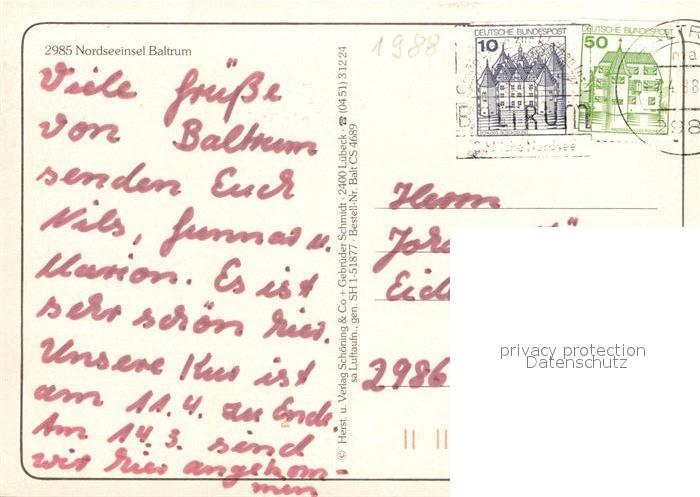 2985 Nordseeinsel Baltrum
Viele Grüße
von Baltrum
senden Euch
Nils, Gunnar u.
Marion. Es ist
sehr schön hier.
Unsere Kur ist
am 11.4. zu Ende.
Am 14.3. sind
wir hier angekom-
men
© Herst. u. Verlag Schöning & Co + Gebrüder Schmidt · 2400 Lübeck · ☎ (04 51) 3 12 24
sa Luftaufn., gen. SH 1-51877 · Bestell-Nr. Balt CS 4689
1988
DEUTSCHE BUNDESPOST
10
DEUTSCHE BUNDESPOST
50
Herrn
2986
privacy protection
Datenschutz